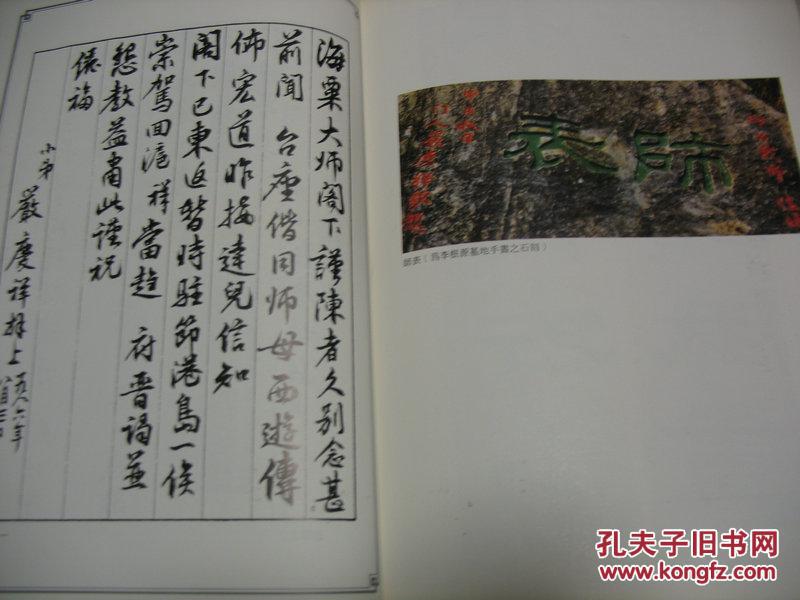 海粟大师阁下謹陳者久别念甚
前聞 台座偕同师母西遊傳
佈宏道昨接達兒信知
阁下已東返暂時駐節港島一俟
崇駕回滬祥當趋 府晋謁並
懇教益肅此谨祝
儷福
小弟 嚴慶祥拜上
一九八六年
師表
師表（爲李根源墓地手書之石刻）
孔夫子旧书网
www.kongfz.com